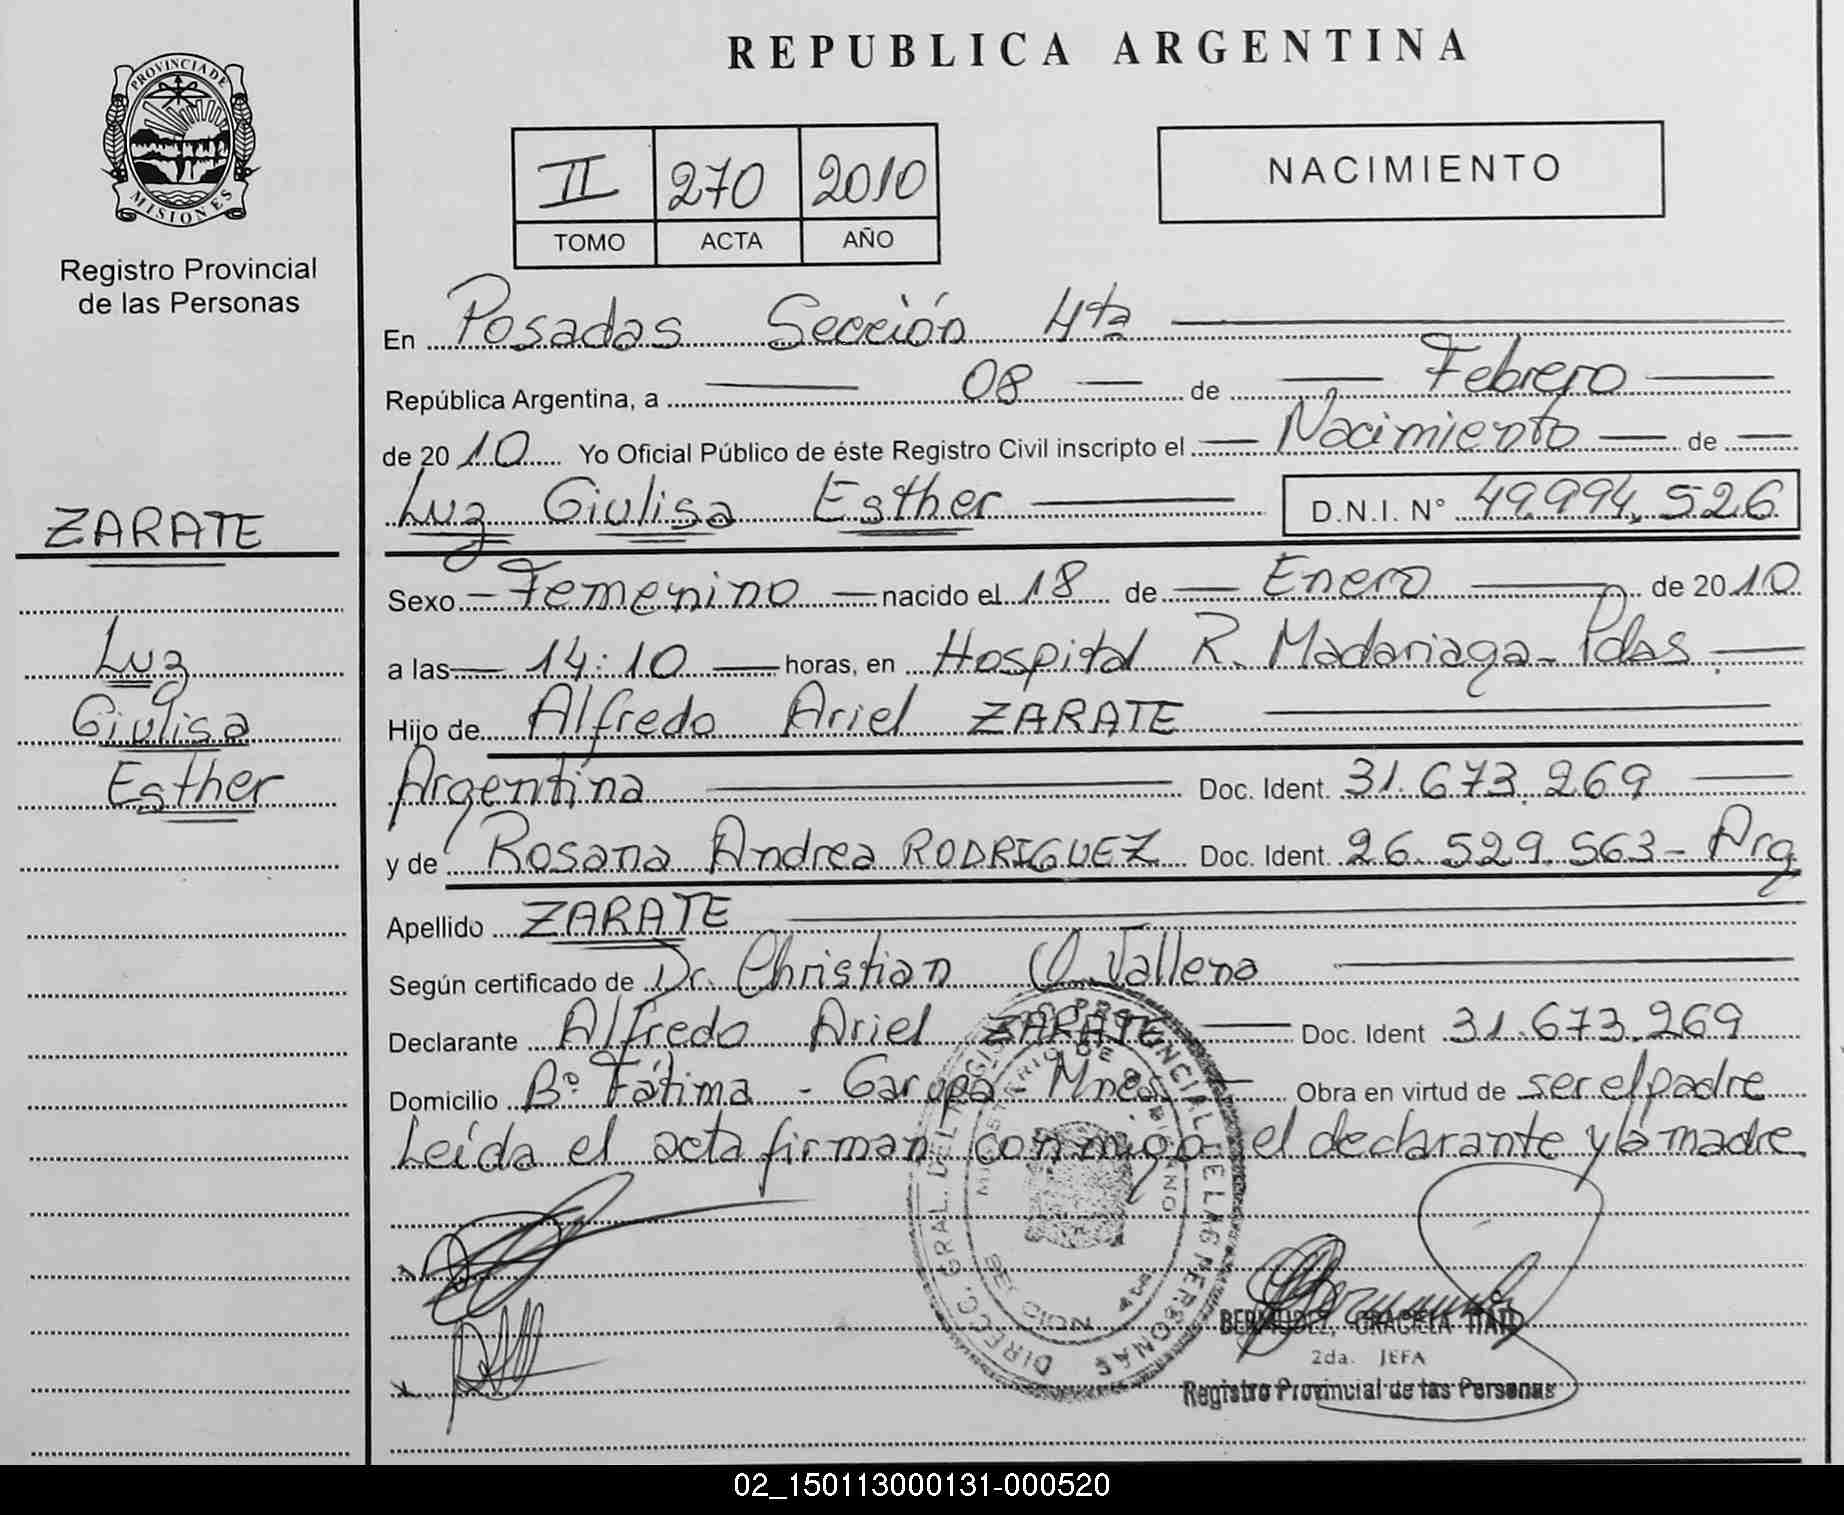 REPUBLICA ARGENTINA
PROVINCIA DE
MISIONES
Registro Provincial
de las Personas
II 270 2010
TOMO ACTA AÑO
NACIMIENTO
En Posadas Sección 4ta
República Argentina, a 08 de Febrero
de 2010 Yo Oficial Público de éste Registro Civil inscripto el Nacimiento de
Luz Giulisa Esther D.N.I. N° 49.994.526
ZARATE
Luz
Giulisa
Esther
Sexo Femenino nacido el 18 de Enero de 2010
a las 14:10 horas, en Hospital R. Madariaga - Pdas.
Hijo de Alfredo Ariel ZARATE
Argentina Doc. Ident. 31.673.269
y de Rosana Andrea RODRIGUEZ Doc. Ident. 26.529.563 - Arg
Apellido ZARATE
Según certificado de Dr. Christian O. Vallena
Declarante Alfredo Ariel ZARATE Doc. Ident 31.673.269
Domicilio B° Fátima - Garupá - Mnes Obra en virtud de ser el padre
Leída el acta firman conmigo el declarante y la madre
DIRECC. GRAL. DEL REGISTRO PROVINCIAL DE LAS PERSONAS
MINISTERIO DE GOBIERNO
BERMUDEZ, GRACIELA ITATI
2da. JEFA
Registro Provincial de las Personas
02_150113000131-000520